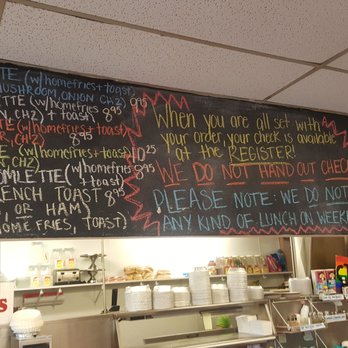 TE (w/homefries + toast)
MUSHROOM, ONION CHZ) 9.95
ETTE (w/homefries
+ toast) 8.95
TE (w/homefries + toast)
8.95
(w/homefries + toast)
CHZ) 10.25
OMLETTE (w/homefries
+ toast) 8.95
ENCH TOAST 8.95
OR HAM
OME FRIES, TOAST)
When you are all set with
your order, your check is available
at the REGISTER!
WE DO NOT HAND OUT CHEC
PLEASE NOTE: WE DO NOT
ANY KIND OF LUNCH ON WEEK